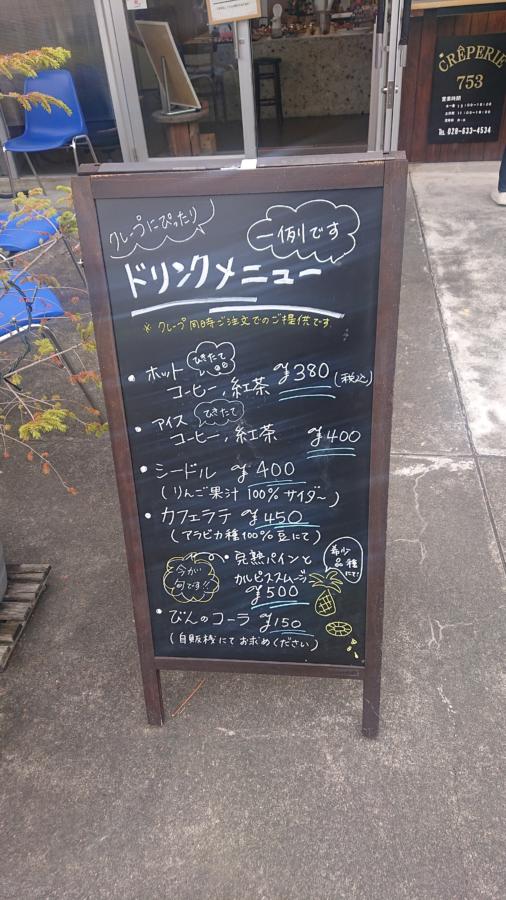 CRÊPERIE
753
営業時間
TEL 028-633-4534
クレープにぴったり
一例です
ドリンクメニュー
※クレープ同時ご注文でのご提供です。
・ホット
コーヒー,紅茶 ¥380(税込)
・アイス
コーヒー,紅茶 ¥400
・シードル ¥400
(りんご果汁 100%サイダ〜)
・カフェラテ ¥450
(アラビカ種100%豆にて)
今が
旬です!!
・完熟パインと
カルピススムージー
¥500
希少
品種
にて!
・びんのコーラ ¥150
(自販機にてお求めください)